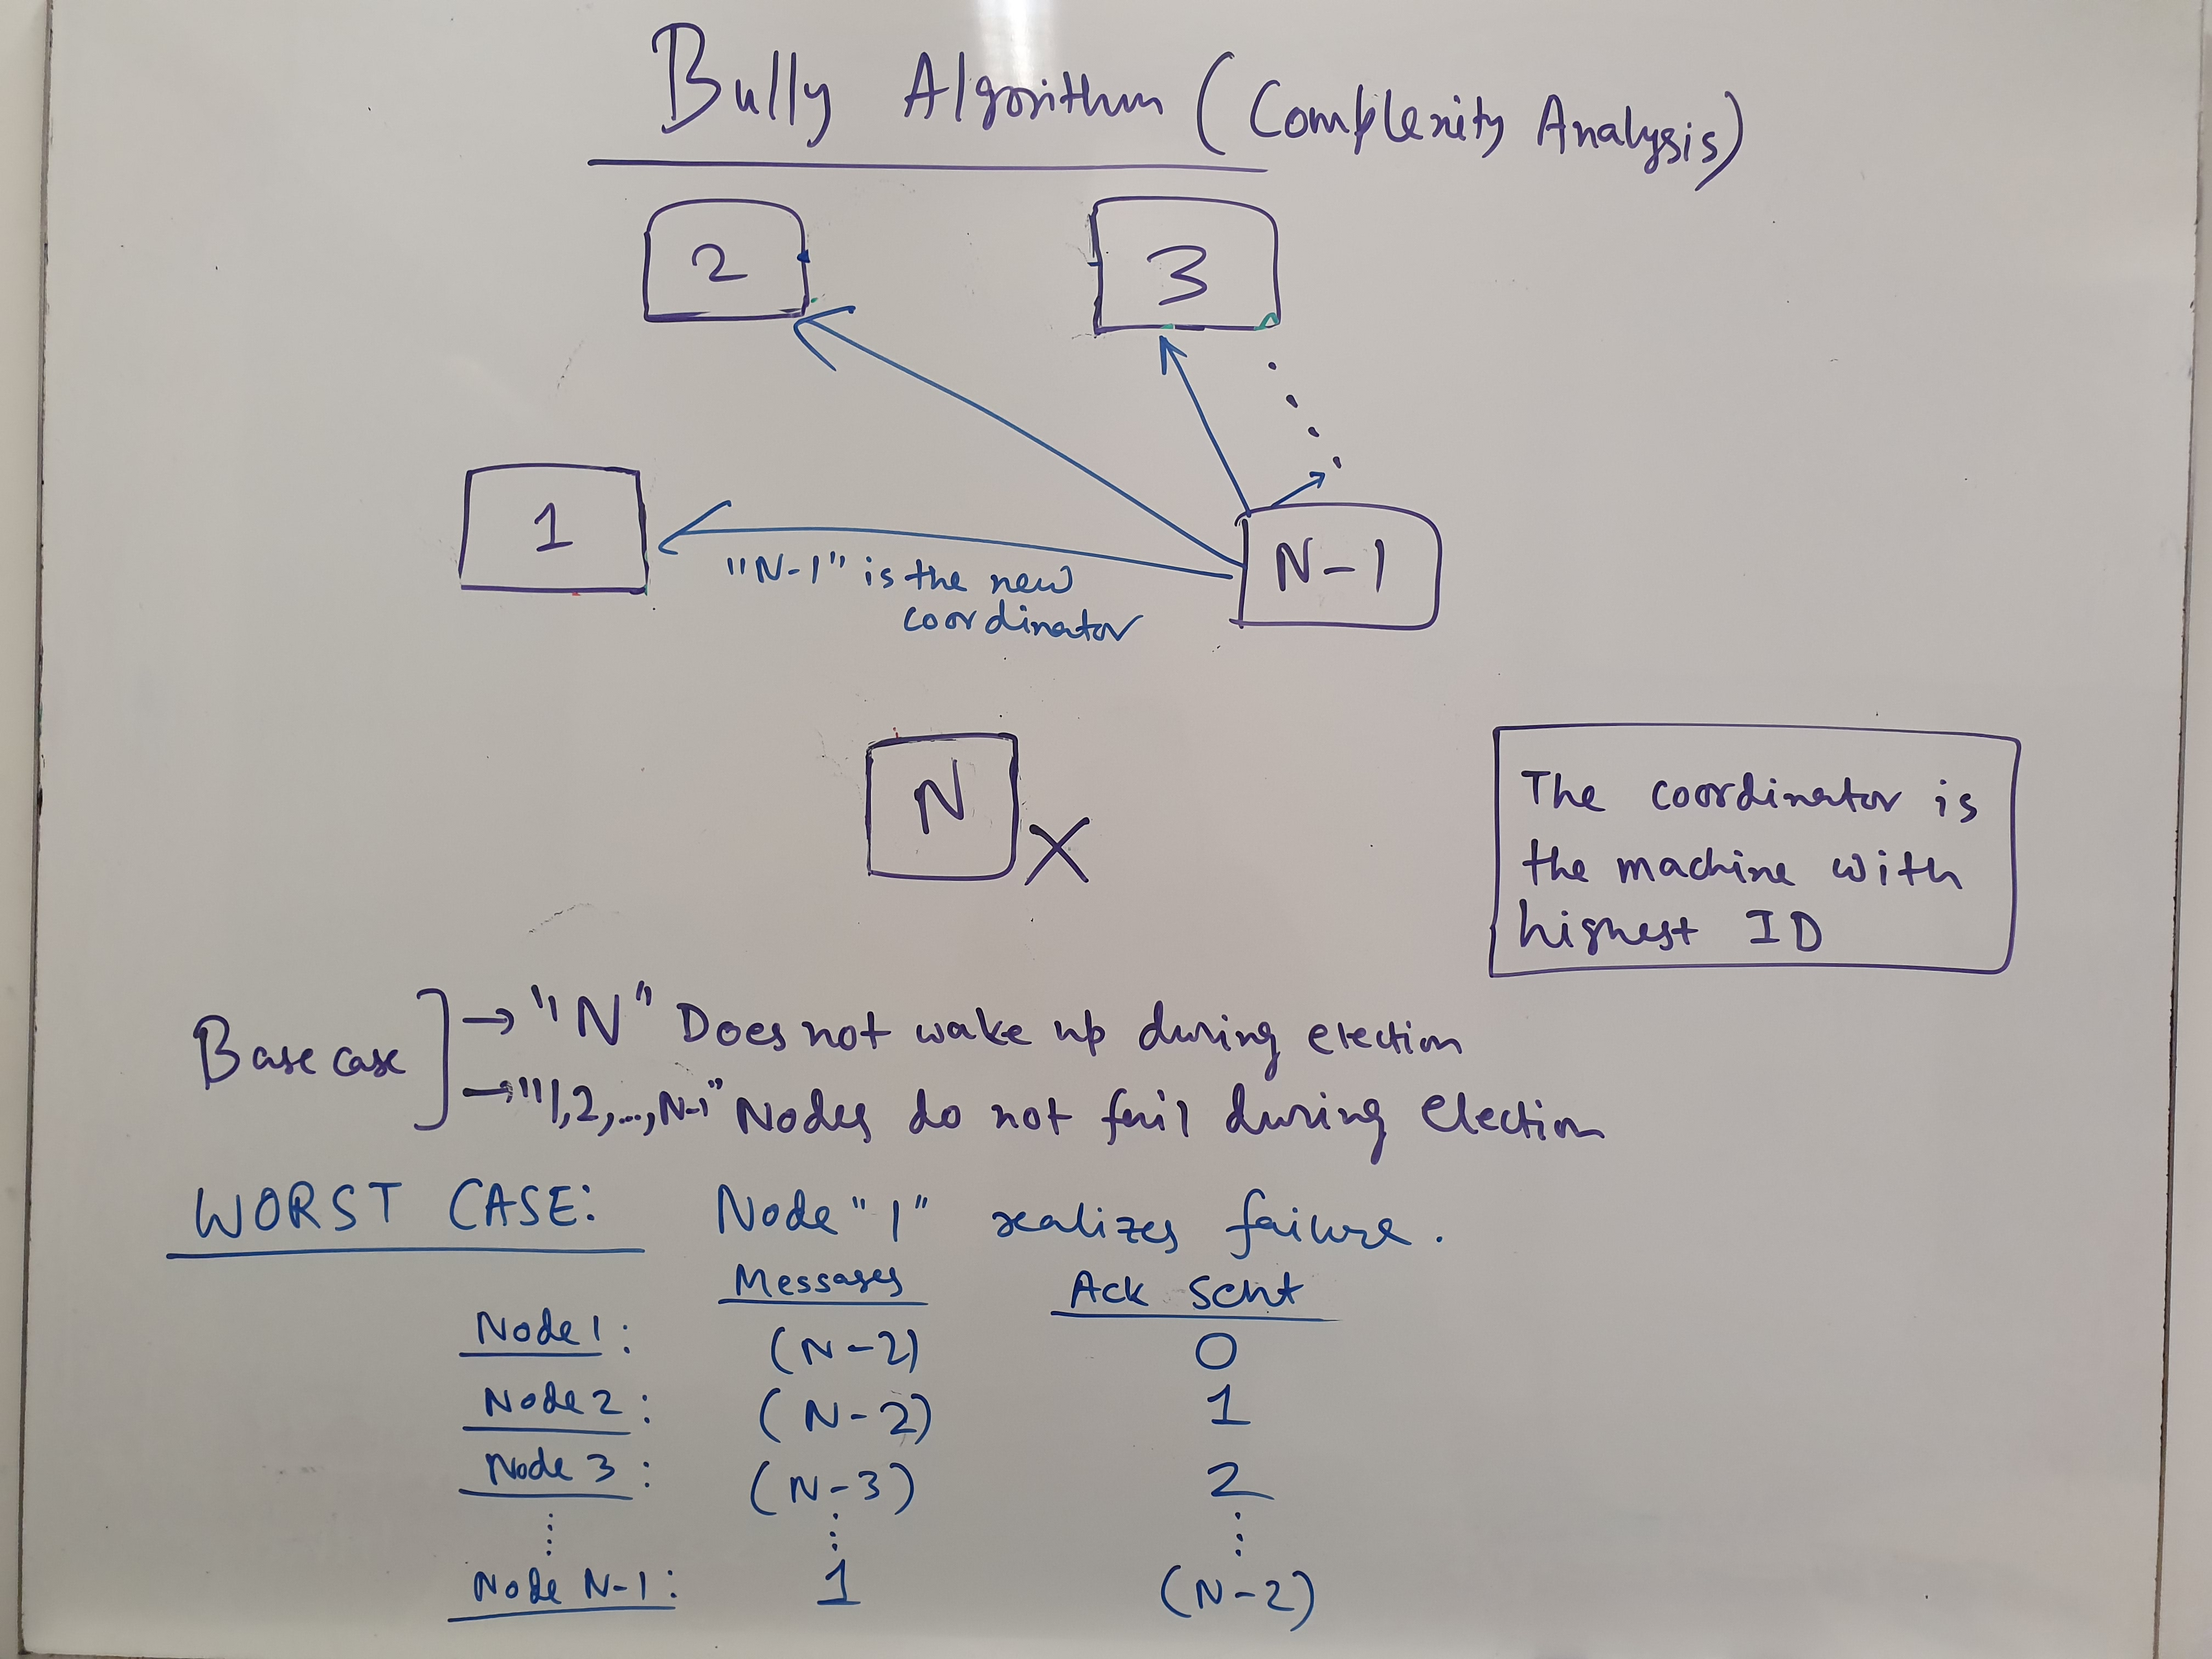 Bully Algorithm (Complexity Analysis)
2
3
1
N-1
"N-1" is the new
coordinator
N
X
The coordinator is
the machine with
highest ID
Base case
→ "N" Does not wake up during election
→ "1,2,...,N-1" Nodes do not fail during election
WORST CASE: Node "1" realizes failure.
Messages Ack Sent
Node 1: (N-2) 0
Node 2: (N-2) 1
Node 3: (N-3) 2
Node N-1: 1 (N-2)